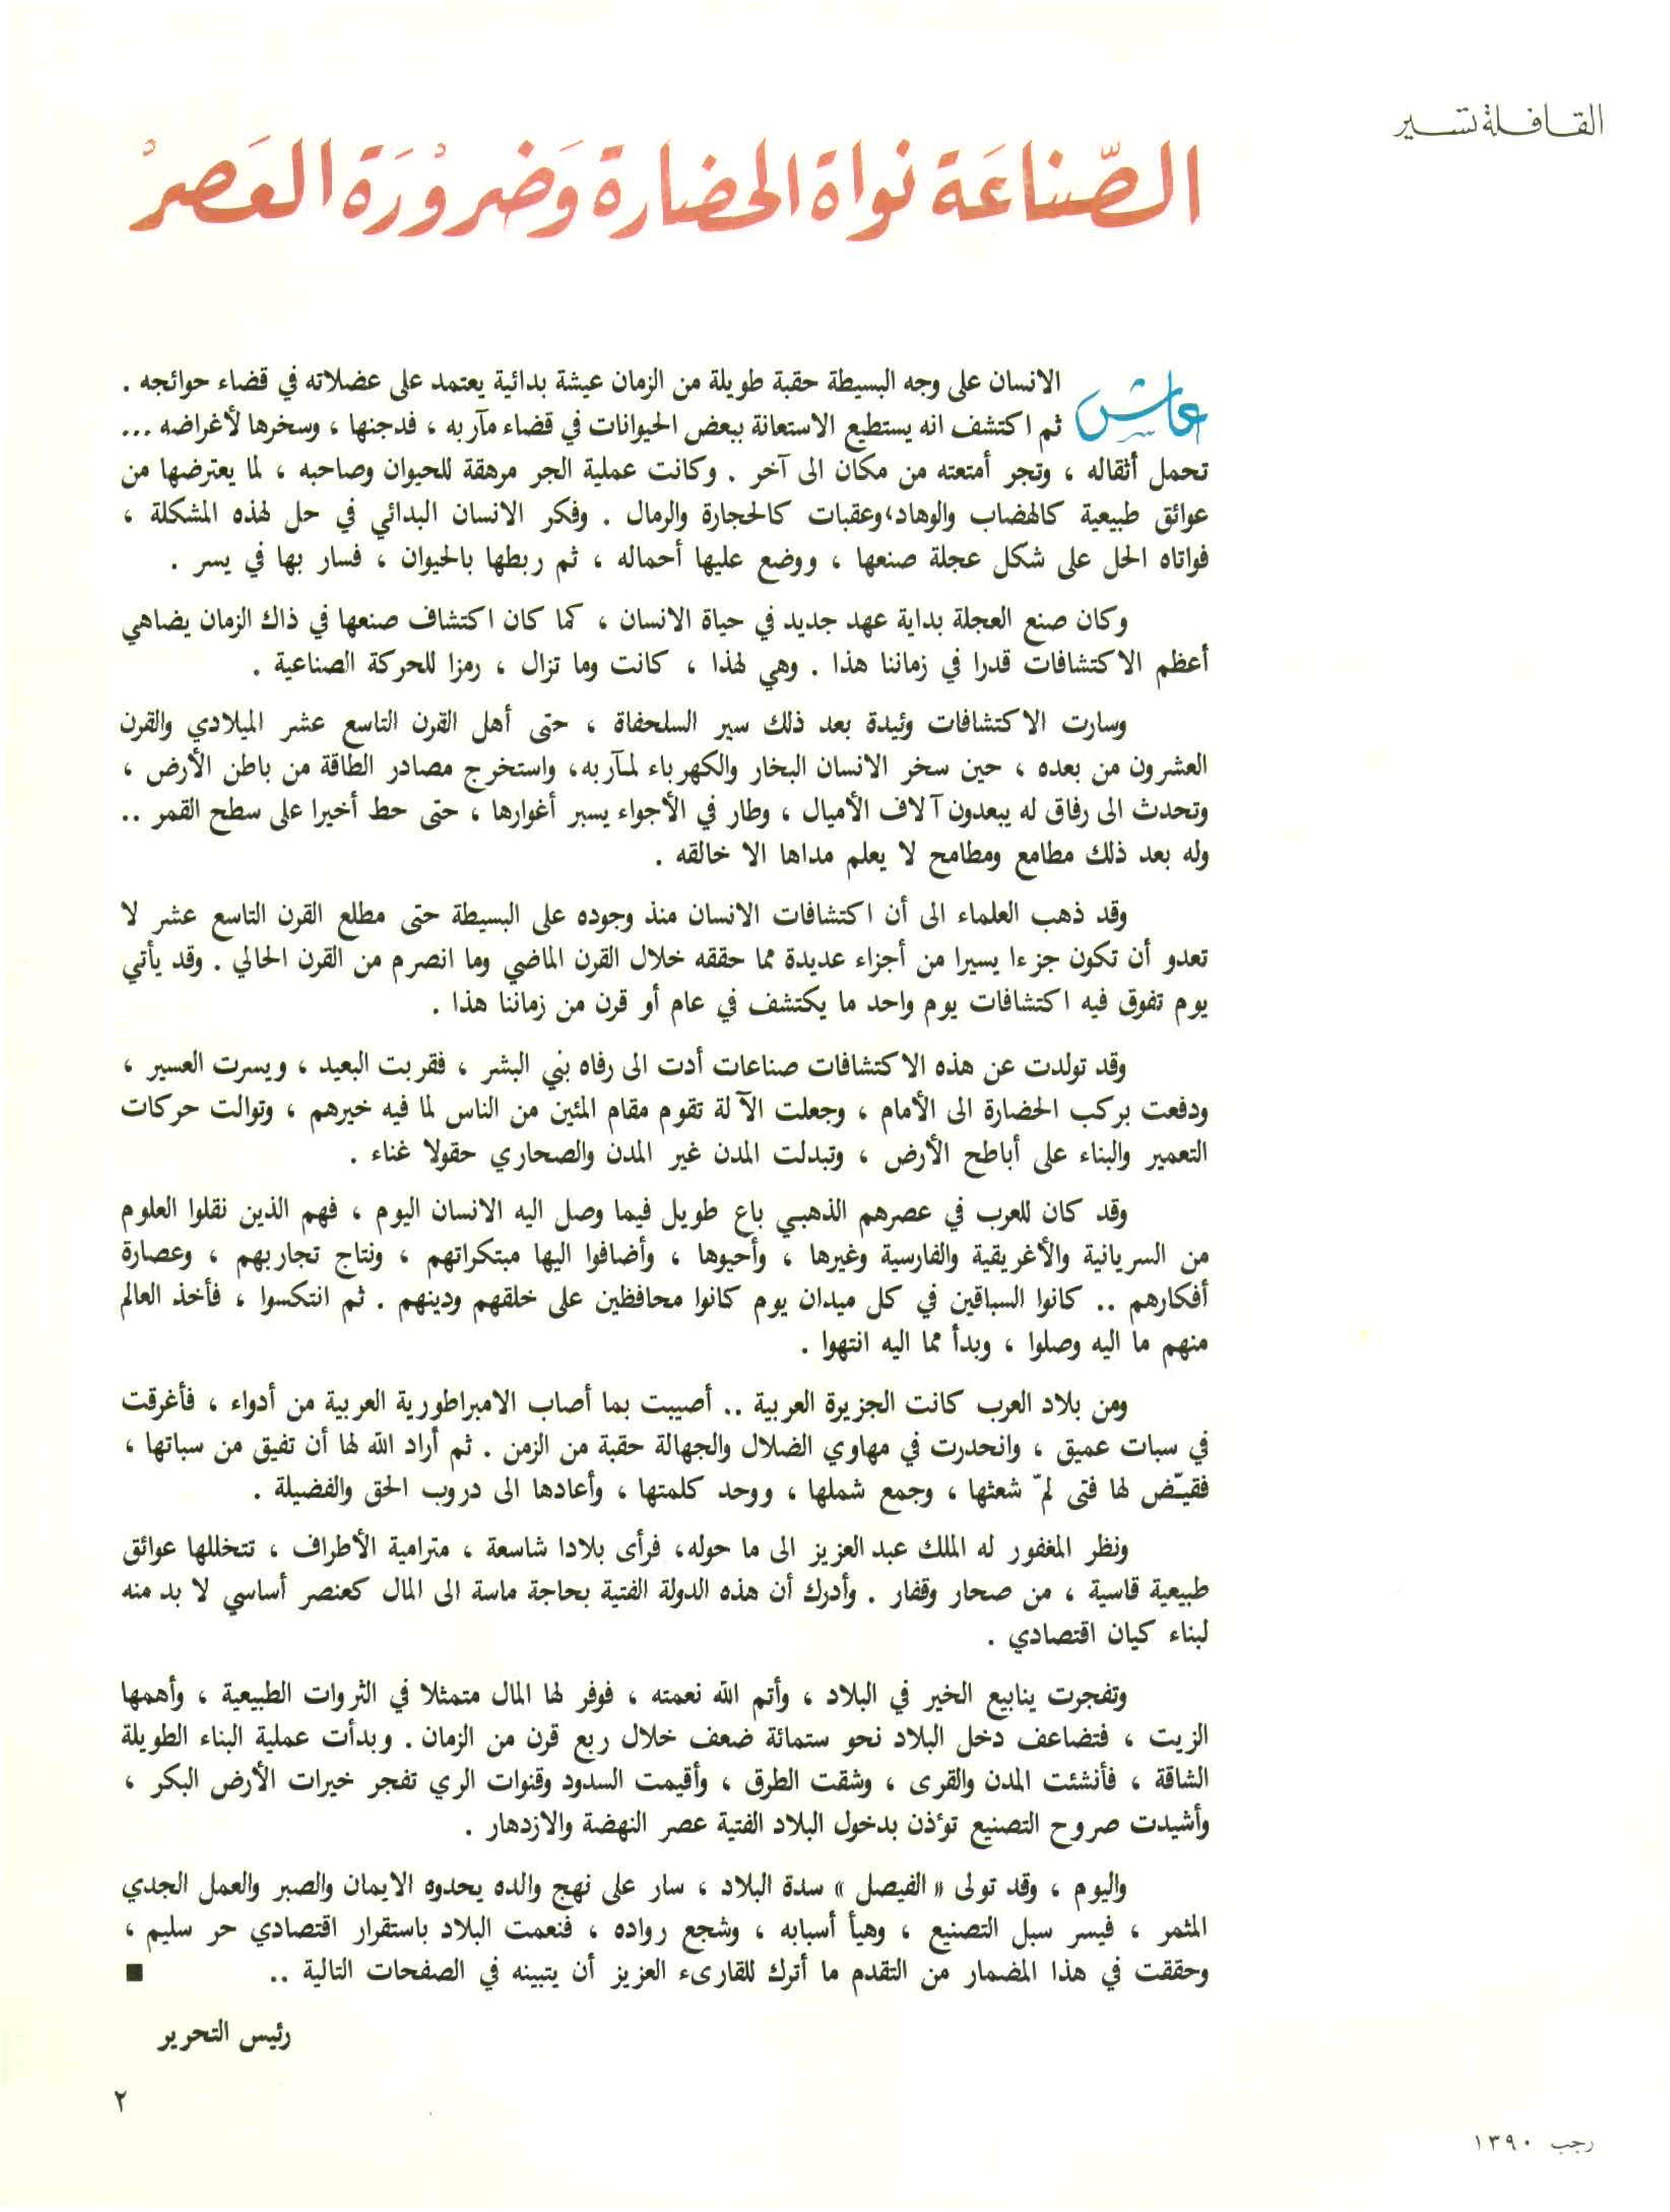 القافلة تسير
الصّناعَة نواة الحضارة وَضرورَة العَصرْ
عاش الانسان على وجه البسيطة حقبة طويلة من الزمان عيشة بدائية يعتمد على عضلاته في قضاء حوائجه .
ثم اكتشف انه يستطيع الاستعانة ببعض الحيوانات في قضاء مآربه ، فدجنها ، وسخرها لأغراضه ...
تحمل أثقاله ، وتجر أمتعته من مكان الى آخر . وكانت عملية الجر مرهقة للحيوان وصاحبه ، لما يعترضها من
عوائق طبيعية كالهضاب والوهاد،وعقبات كالحجارة والرمال . وفكر الانسان البدائي في حل لهذه المشكلة ،
فواتاه الحل على شكل عجلة صنعها ، ووضع عليها أحماله ، ثم ربطها بالحيوان ، فسار بها في يسر .
وكان صنع العجلة بداية عهد جديد في حياة الانسان ، كما كان اكتشاف صنعها في ذاك الزمان يضاهي
أعظم الاكتشافات قدرا في زماننا هذا . وهي لهذا ، كانت وما تزال ، رمزا للحركة الصناعية .
وسارت الاكتشافات وئيدة بعد ذلك سير السلحفاة ، حتى أهل القرن التاسع عشر الميلادي والقرن
العشرون من بعده ، حين سخر الانسان البخار والكهرباء لمآربه، واستخرج مصادر الطاقة من باطن الأرض ،
وتحدث الى رفاق له يبعدون آلاف الأميال ، وطار في الأجواء يسبر أغوارها ، حتى حط أخيرا على سطح القمر ..
وله بعد ذلك مطامع ومطامح لا يعلم مداها الا خالقه .
وقد ذهب العلماء الى أن اكتشافات الانسان منذ وجوده على البسيطة حتى مطلع القرن التاسع عشر لا
تعدو أن تكون جزءا يسيرا من أجزاء عديدة مما حققه خلال القرن الماضي وما انصرم من القرن الحالي . وقد يأتي
يوم تفوق فيه اكتشافات يوم واحد ما يكتشف في عام أو قرن من زماننا هذا .
وقد تولدت عن هذه الاكتشافات صناعات أدت الى رفاه بني البشر ، فقربت البعيد ، ويسرت العسير ،
ودفعت بركب الحضارة الى الأمام ، وجعلت الآلة تقوم مقام المئين من الناس لما فيه خيرهم ، وتوالت حركات
التعمير والبناء على أباطح الأرض ، وتبدلت المدن غير المدن والصحاري حقولا غناء .
وقد كان للعرب في عصرهم الذهبي باع طويل فيما وصل اليه الانسان اليوم ، فهم الذين نقلوا العلوم
من السريانية والأغريقية والفارسية وغيرها ، وأحيوها ، وأضافوا اليها مبتكراتهم ، ونتاج تجاربهم ، وعصارة
أفكارهم .. كانوا السباقين في كل ميدان يوم كانوا محافظين على خلقهم ودينهم . ثم انتكسوا ، فأخذ العالم
منهم ما اليه وصلوا ، وبدأ مما اليه انتهوا .
ومن بلاد العرب كانت الجزيرة العربية .. أصيبت بما أصاب الامبراطورية العربية من أدواء ، فأغرقت
في سبات عميق ، وانحدرت في مهاوي الضلال والجهالة حقبة من الزمن . ثم أراد الله لها أن تفيق من سباتها ،
فقيّض لها فتى لمّ شعثها ، وجمع شملها ، ووحد كلمتها ، وأعادها الى دروب الحق والفضيلة .
ونظر المغفور له الملك عبد العزيز الى ما حوله، فرأى بلادا شاسعة ، مترامية الأطراف ، تتخللها عوائق
طبيعية قاسية ، من صحار وقفار . وأدرك أن هذه الدولة الفتية بحاجة ماسة الى المال كعنصر أساسي لا بد منه
لبناء كيان اقتصادي .
وتفجرت ينابيع الخير في البلاد ، وأتم الله نعمته ، فوفر لها المال متمثلا في الثروات الطبيعية ، وأهمها
الزيت ، فتضاعف دخل البلاد نحو ستمائة ضعف خلال ربع قرن من الزمان . وبدأت عملية البناء الطويلة
الشاقة ، فأنشئت المدن والقرى ، وشقت الطرق ، وأقيمت السدود وقنوات الري تفجر خيرات الأرض البكر ،
وأشيدت صروح التصنيع تؤذن بدخول البلاد الفتية عصر النهضة والازدهار .
واليوم ، وقد تولى « الفيصل » سدة البلاد ، سار على نهج والده يحدوه الايمان والصبر والعمل الجدي
المثمر ، فيسر سبل التصنيع ، وهيأ أسبابه ، وشجع رواده ، فنعمت البلاد باستقرار اقتصادي حر سليم ،
وحققت في هذا المضمار من التقدم ما أترك للقارىء العزيز أن يتبينه في الصفحات التالية .. ■
رئيس التحرير
٢
رجب ١٣٩٠